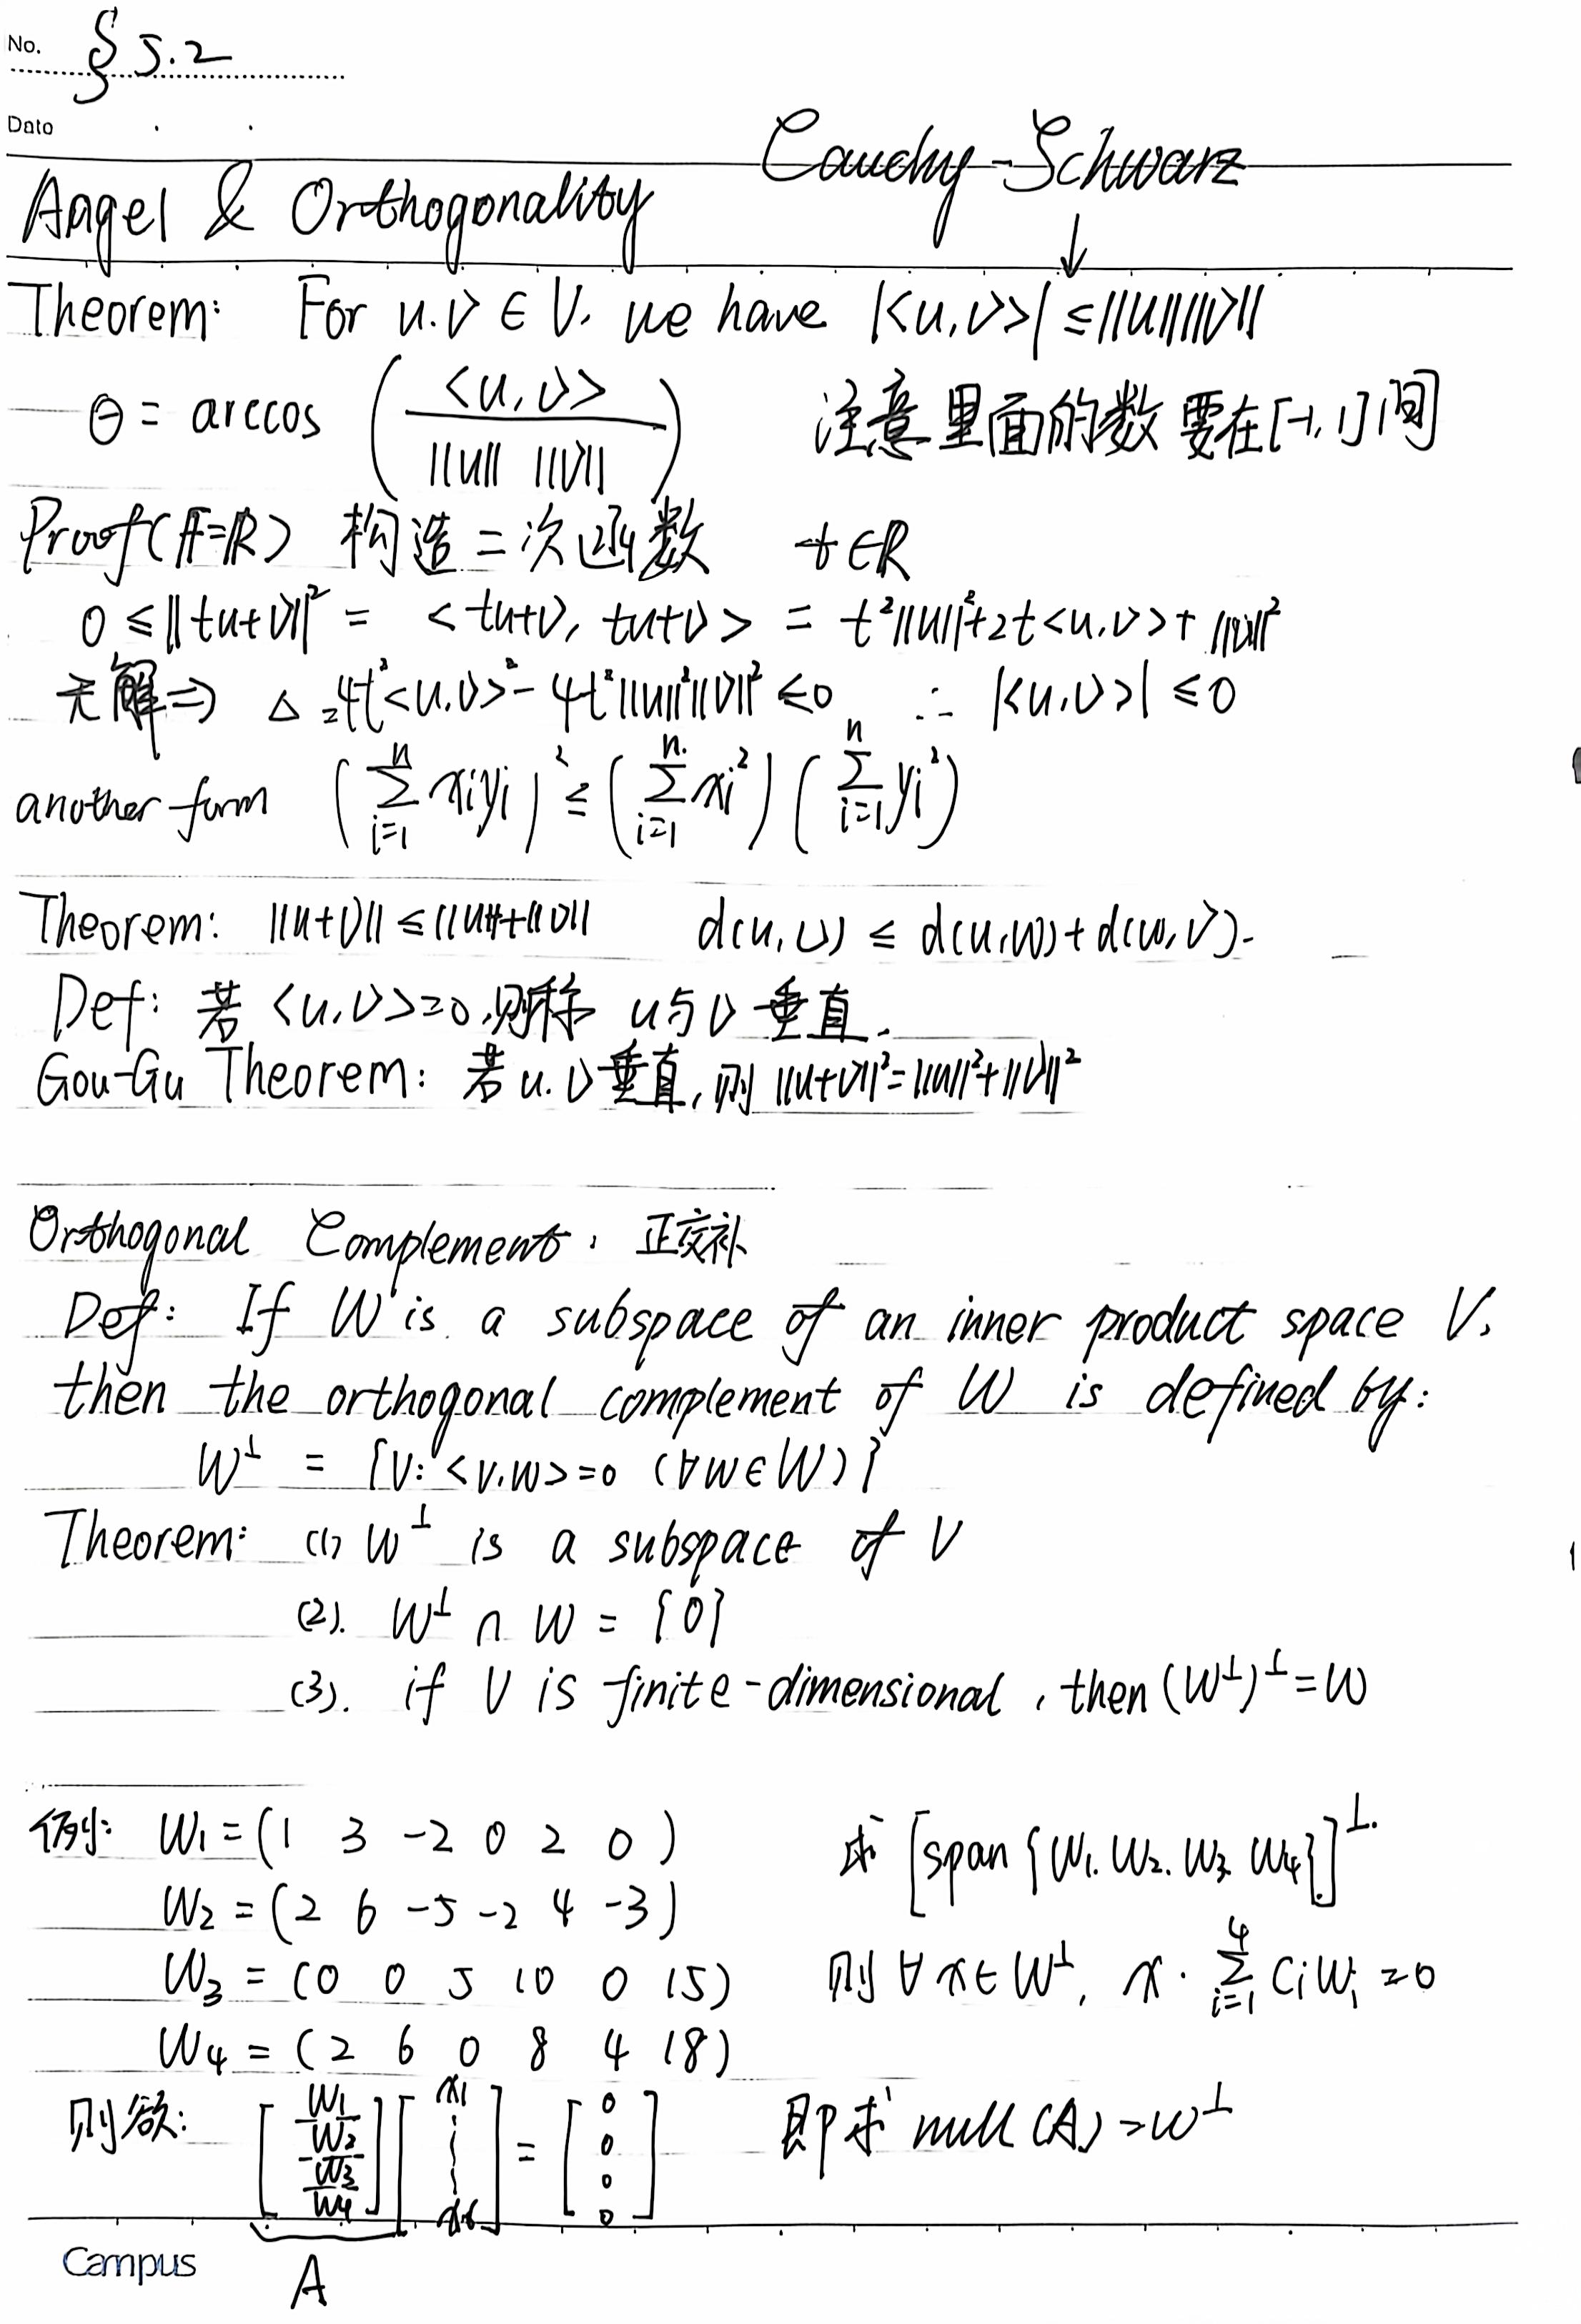 No. § 5.2
Date
Cauchy-Schwarz
Angel & Orthogonality
↓
Theorem: For u.v ∈ V, we have |<u,v>| ≤ ||u||||v||
θ = arccos ( <u,v> / ||u|| ||v|| ) 注意里面的数要在[-1,1]间
Proof(F=R) 构造二次函数 t∈R
0 ≤ ||tu+v||² = <tu+v, tu+v> = t²||u||²+2t<u,v>+||v||²
无解⇒ △=4t²<u,v>²-4t²||u||²||v||² ≤0 ∴ |<u,v>| ≤0
another form (∑_{i=1}^{n} xiyi)² ≤ (∑_{i=1}^{n} xi²)(∑_{i=1}^{n} yi²)
Theorem: ||u+v|| ≤ ||u||+||v|| d(u,v) ≤ d(u,w)+d(w,v).
Def: 若<u,v>=0,则称 u与v 垂直.
Gou-Gu Theorem: 若u.v垂直,则 ||u+v||²=||u||²+||v||²
Orthogonal Complement, 正交补
Def: If W is a subspace of an inner product space V,
then the orthogonal complement of W is defined by:
W⊥ = {v: <v,w>=0 (∀w∈W)}
Theorem: (1) W⊥ is a subspace of V
(2). W⊥ ∩ W = {0}
(3). if V is finite-dimensional, then (W⊥)⊥=W
例: W1 = (1 3 -2 0 2 0) 求 [span {W1. W2. W3 W4}]⊥.
W2 = (2 6 -5 -2 4 -3)
W3 = (0 0 5 10 0 15) 则∀x∈W⊥, x·∑_{i=1}^{4} CiWi =0
W4 = (2 6 0 8 4 18)
则欲: [W1 W2 W3 W4] [x1 ⋮ x6] = [0 0 0 0] 即求 null(A)=W⊥
Campus A